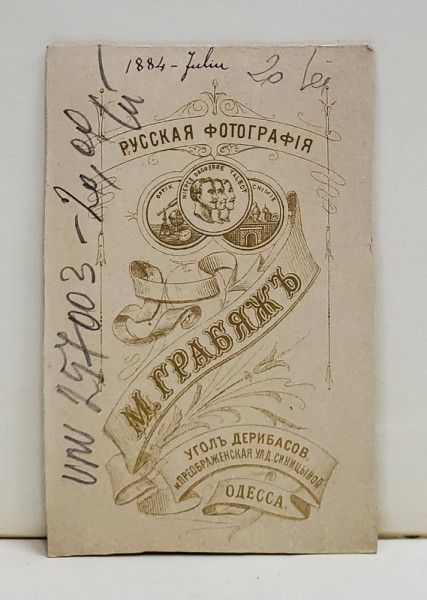 1884 - Juliu
20 Lei
РУССКАЯ ФОТОГРАФІЯ
NIEPCE DAGUERRE TALBOT
OPTIK
CHIMIE
М. ГРАБЯЖЪ
УГОЛЪ ДЕРИБАСОВ.
И ПРЕОБРАЖЕНСКАЯ УЛ. Д. СИНИЦЫНОЙ
ОДЕССА.
257003